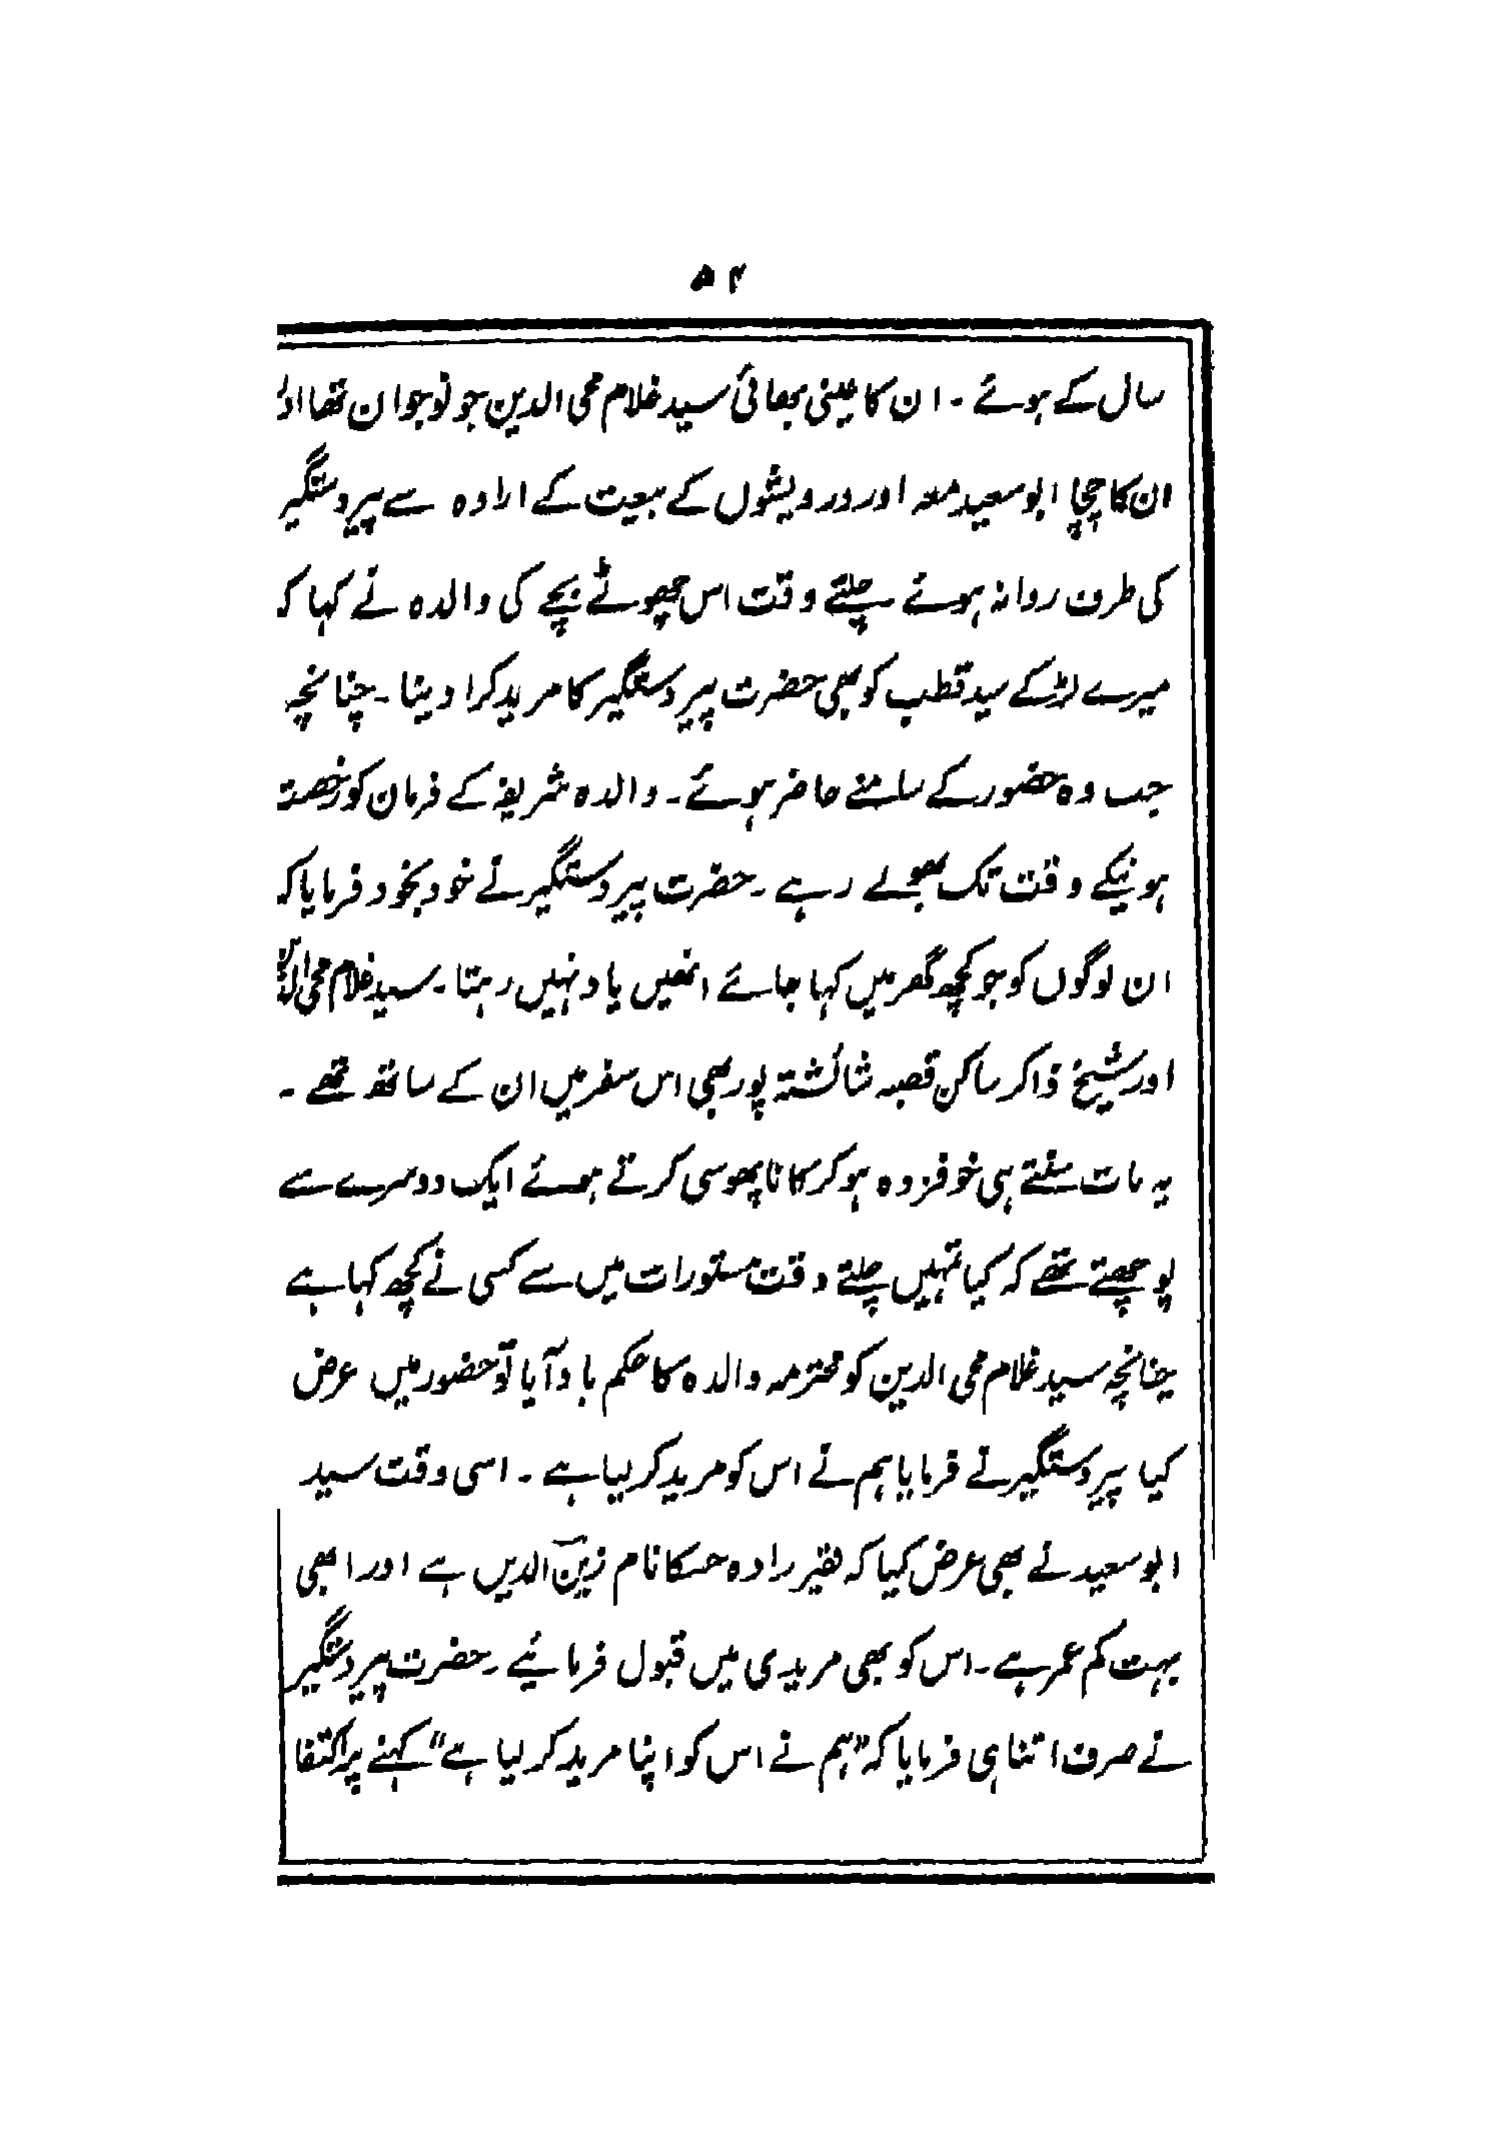 ۵۲
سال کے ہوئے ۔ ان کا عینی بھائی سید غلام محی الدین جو نوجوان تھا اور
ان کا چچا ابو سعید معہ اور درویشوں کے بیعت کے ارادہ سے پیر دستگیر
کی طرف روانہ ہوئے چلتے وقت اس چھوٹے بچے کی والدہ نے کہا کہ
میرے لڑکے سید قطب کو بھی حضرت پیر دستگیر کا مرید کرا دینا ۔ چنانچہ
جب وہ حضور کے سامنے حاضر ہوئے ۔ والدہ شریفہ کے فرمان کو رخصت
ہونیکے وقت تک بھولے رہے ۔ حضرت پیر دستگیر نے خود بخود فرمایا کہ
ان لوگوں کو جو کچھ گھر میں کہا جائے انھیں یاد نہیں رہتا ۔ سید غلام محی الدین
اور شیخ ذاکر ساکن قصبہ شائشتہ پور بھی اس سفر میں ان کے ساتھ تھے ۔
یہ بات سنتے ہی خوفزدہ ہو کر کانا پھوسی کرتے ہوئے ایک دوسرے سے
پوچھتے تھے کہ کیا تمہیں چلتے وقت مستورات میں سے کسی نے کچھ کہا ہے
چنانچہ سید غلام محی الدین کو محترمہ والدہ کا حکم یاد آیا تو حضور میں عرض
کیا پیر دستگیر نے فرمایا ہم نے اس کو مرید کر لیا ہے ۔ اسی وقت سید
ابو سعید نے بھی عرض کیا کہ فقیر زادہ جسکا نام زین الدیں ہے اور ابھی
بہت کم عمر ہے ۔ اس کو بھی مریدی میں قبول فرمائیے ۔ حضرت پیر دستگیر
نے صرف اتنا ہی فرمایا کہ "ہم نے اس کو اپنا مرید کر لیا ہے" کہنے پر اکتفا